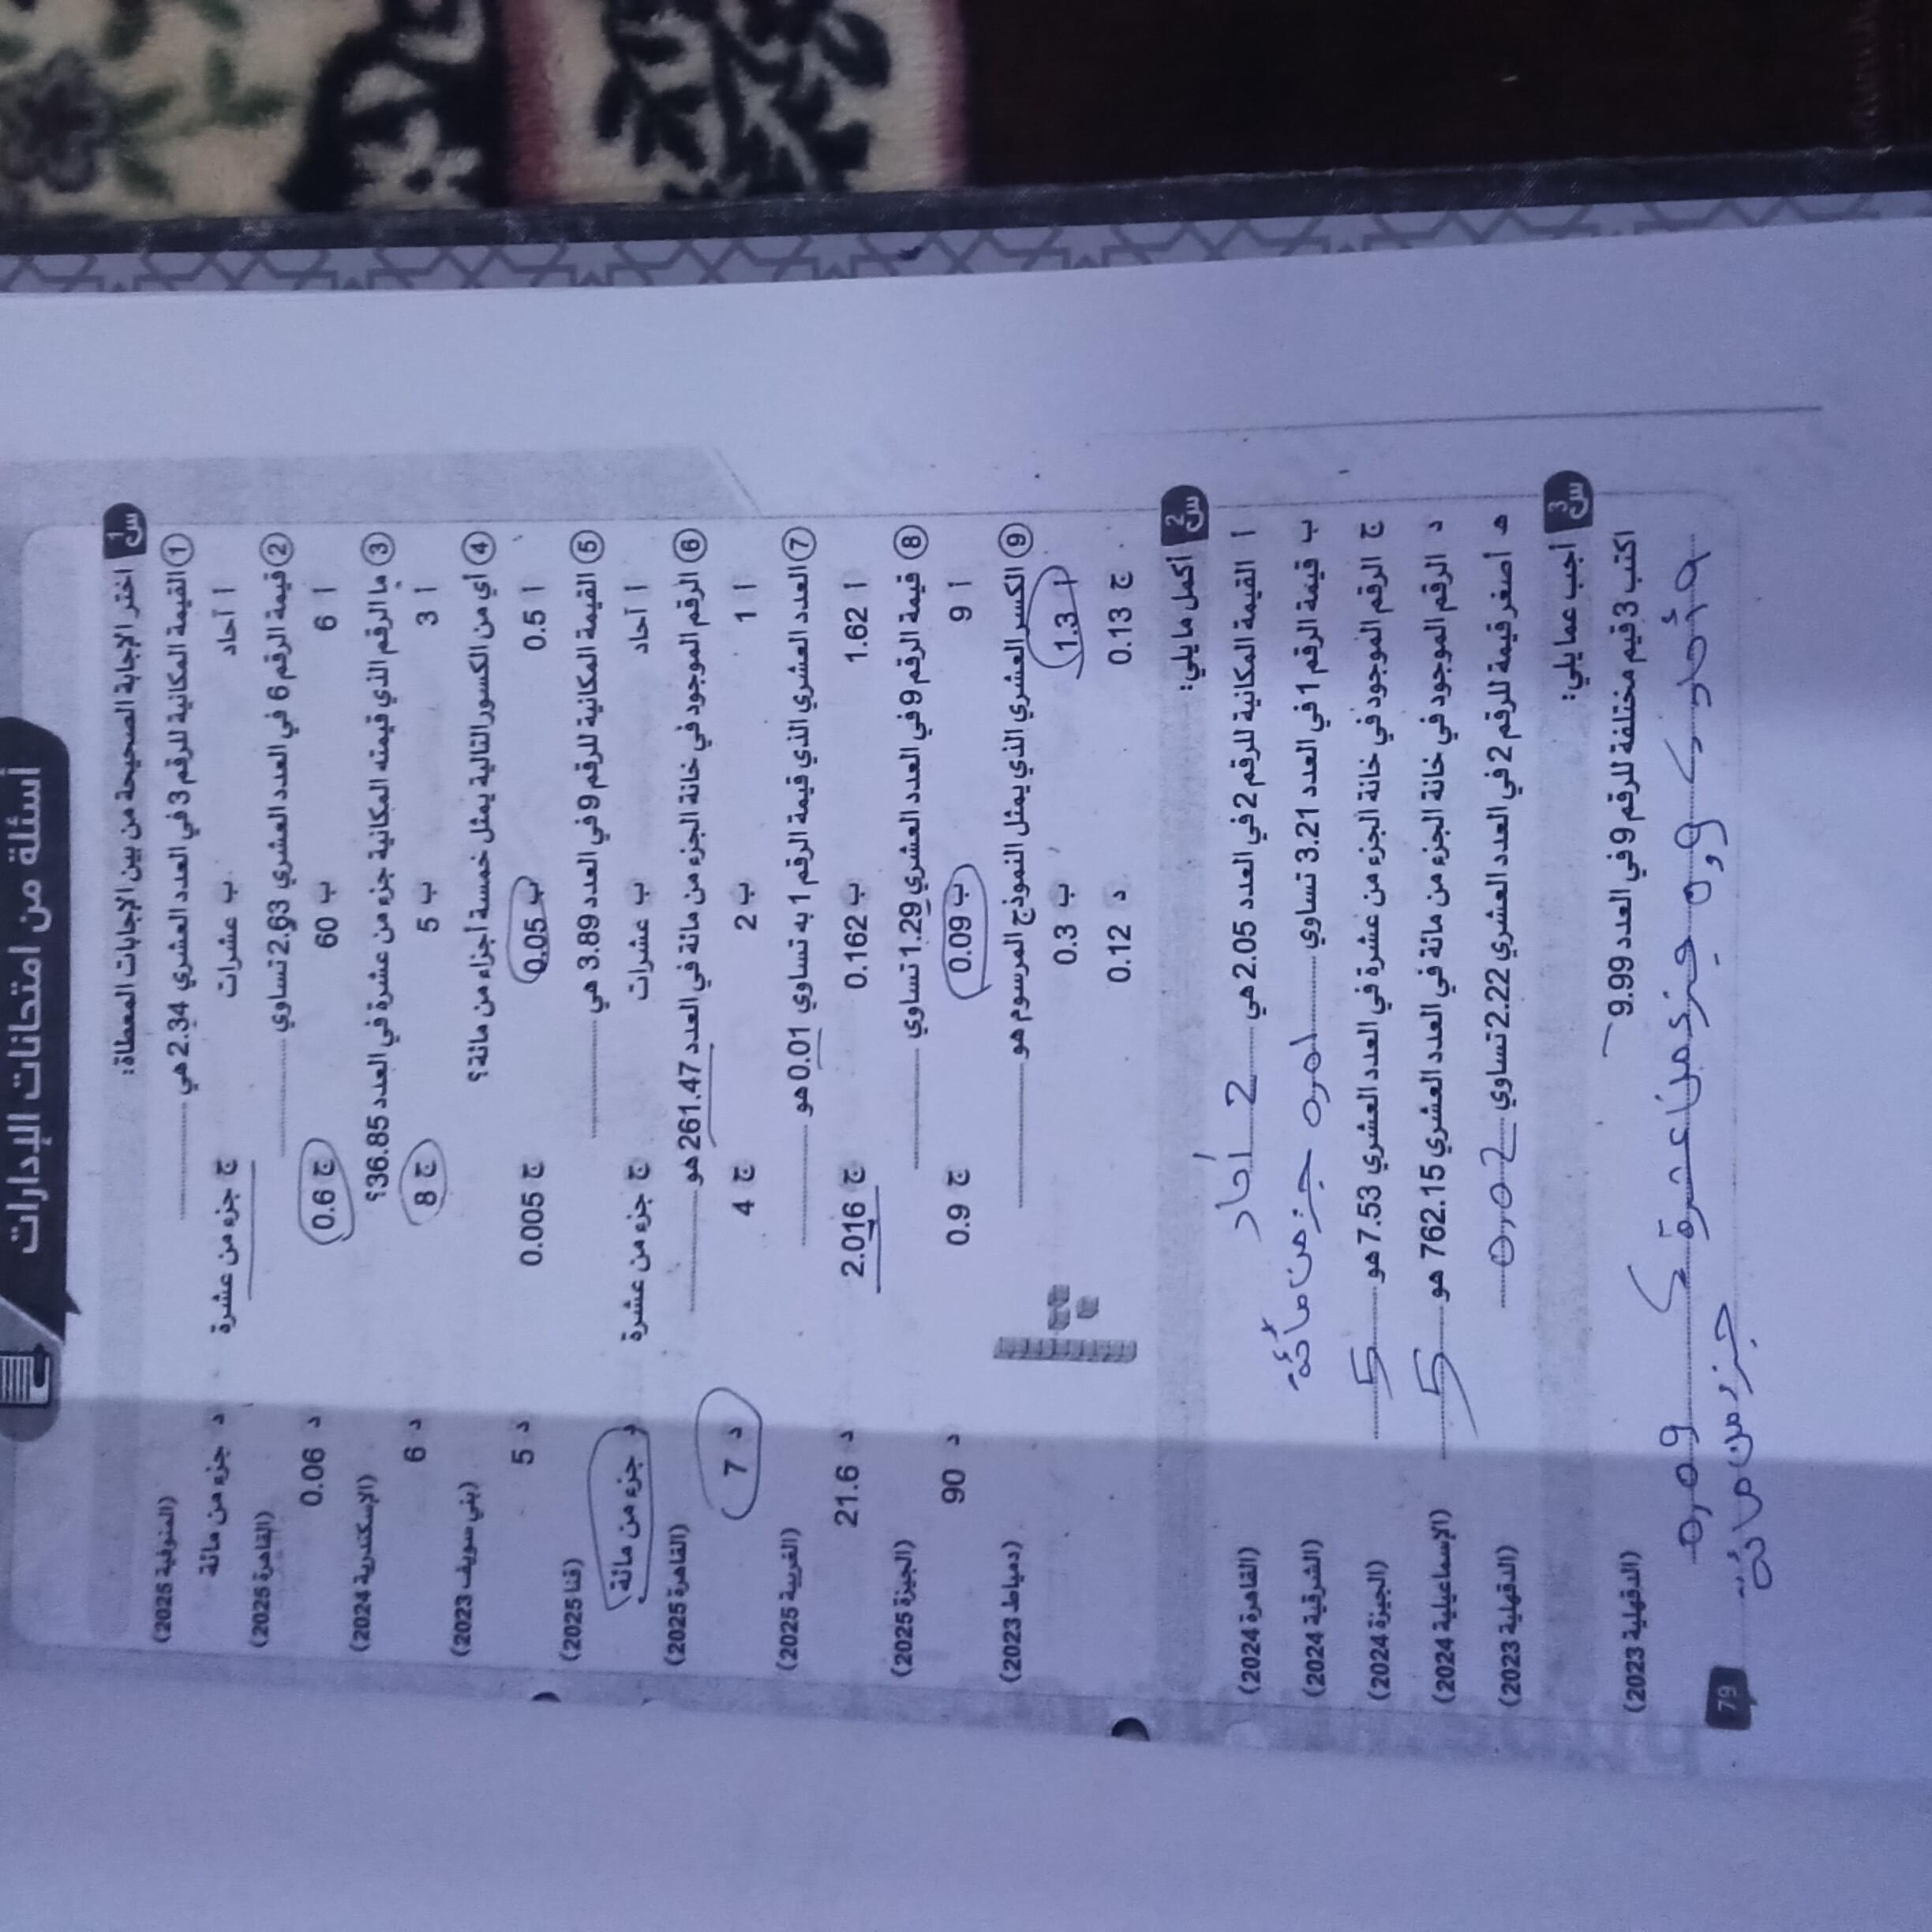 أسئلة من امتحانات الإدارات
س 1 اختر الإجابة الصحيحة من بين الإجابات المعطاة:
1 القيمة المكانية للرقم 3 في العدد العشري 2.34 هي (المنوفية 2025)
أ آحاد ب عشرات ج جزء من عشرة د جزء من مائة
2 قيمة الرقم 6 في العدد العشري 2.63 تساوي (القاهرة 2025)
أ 6 ب 60 ج 0.6 د 0.06
3 ما الرقم الذي قيمته المكانية جزء من عشرة في العدد 36.85؟ (الإسكندرية 2024)
أ 3 ب 5 ج 8 د 6
4 أي من الكسور التالية يمثل خمسة أجزاء من مائة؟ (بني سويف 2023)
أ 0.5 ب 0.05 ج 0.005 د 5
5 القيمة المكانية للرقم 9 في العدد 3.89 هي (قنا 2025)
أ آحاد ب عشرات ج جزء من عشرة د جزء من مائة
6 الرقم الموجود في خانة الجزء من مائة في العدد 261.47 هو (القاهرة 2025)
أ 1 ب 2 ج 4 د 7
7 العدد العشري الذي قيمة الرقم 1 به تساوي 0.01 هو (الغربية 2025)
أ 1.62 ب 0.162 ج 2.016 د 21.6
8 قيمة الرقم 9 في العدد العشري 1.29 تساوي (الجيزة 2025)
أ 9 ب 0.09 ج 0.9 د 90
9 الكسر العشري الذي يمثل النموذج المرسوم هو (دمياط 2023)
أ 1.3 ب 0.3
ج 0.13 د 0.12
س 2 أكمل ما يلي:
أ القيمة المكانية للرقم 2 في العدد 2.05 هي 2 أحاد (القاهرة 2024)
ب قيمة الرقم 1 في العدد 3.21 تساوي جزء من مائة (الشرقية 2024)
ج الرقم الموجود في خانة الجزء من عشرة في العدد العشري 7.53 هو 5 (الجيزة 2024)
د الرقم الموجود في خانة الجزء من مائة في العدد العشري 762.15 هو 5 (الإسماعيلية 2024)
هـ أصغر قيمة للرقم 2 في العدد العشري 2.22 تساوي 0.02 (الدقهلية 2023)
س 3 أجب عما يلي:
اكتب 3 قيم مختلفة للرقم 9 في العدد 9.99 (الدقهلية 2023)
9 أحاد و 9,0 جزء من عشرة و 9 0,0
جزء من مائة
79